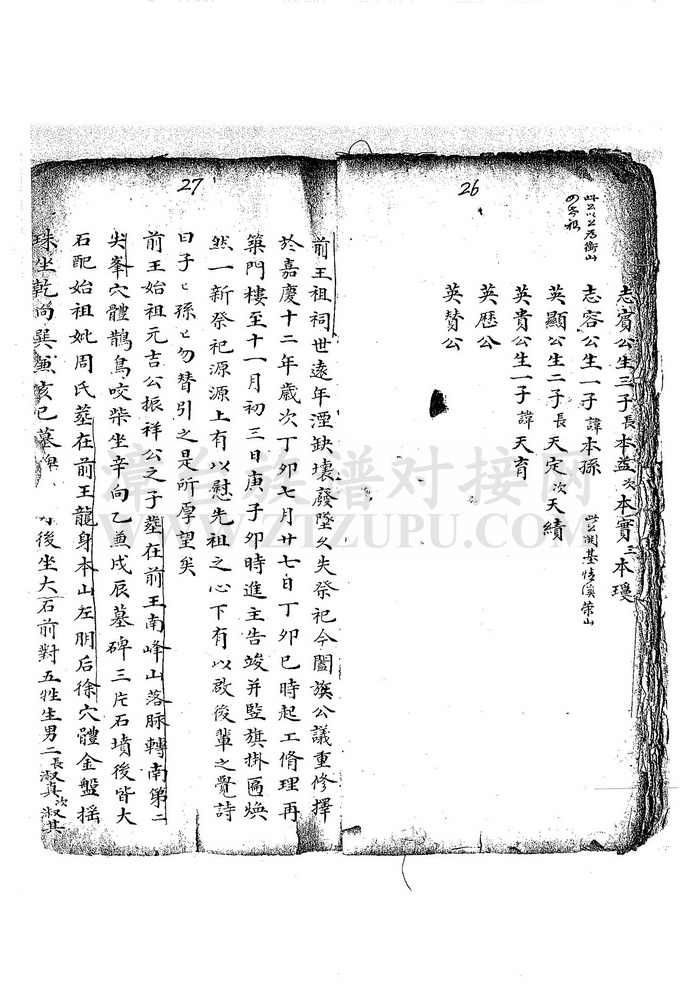 26
志賓公生三子長本益次本實三本瓊
志容公生一子諱本孫
英顯公生二子長天定次天績
英貴公生一子諱天育
英歷公
英贊公
27
前王祖祠世遠年湮缺壞廢墜久失祭祀今闔族公議重修擇
於嘉慶十二年歲次丁卯七月廿七日丁卯巳時起工脩理再
築門樓至十一月初三日庚子卯時進主告竣并竪旗掛匾煥
然一新祭祀源源上有以慰先祖之心下有以啟後輩之覺詩
曰子〻孫〻勿替引之是所厚望矣
前王始祖元吉公振祥公之子墓在前王南峰山落脉轉南第二
尖峯穴體鵲鳥咬柴坐辛向乙兼戌辰墓碑三片石墳後皆大
石配始祖妣周氏墓在前王龍身本山左朋后徐穴體金盤搖
珠坐乾向巽兼亥巳墓
後坐大石前對五牲生男二長淑真次淑其
漳台族谱对接网
WWW.ZTZUPU.COM